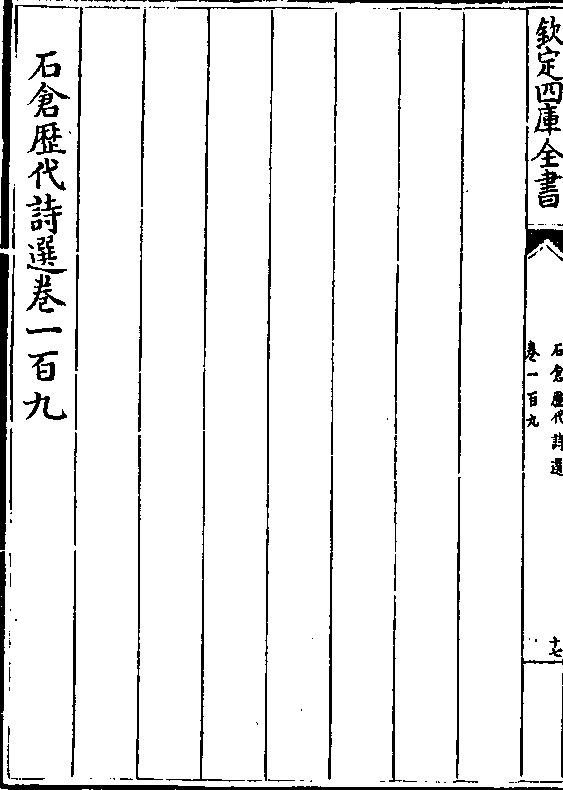 欽定四庫全書
石倉歷代詩選
卷一百九
十七
石倉歷代詩選卷一百九